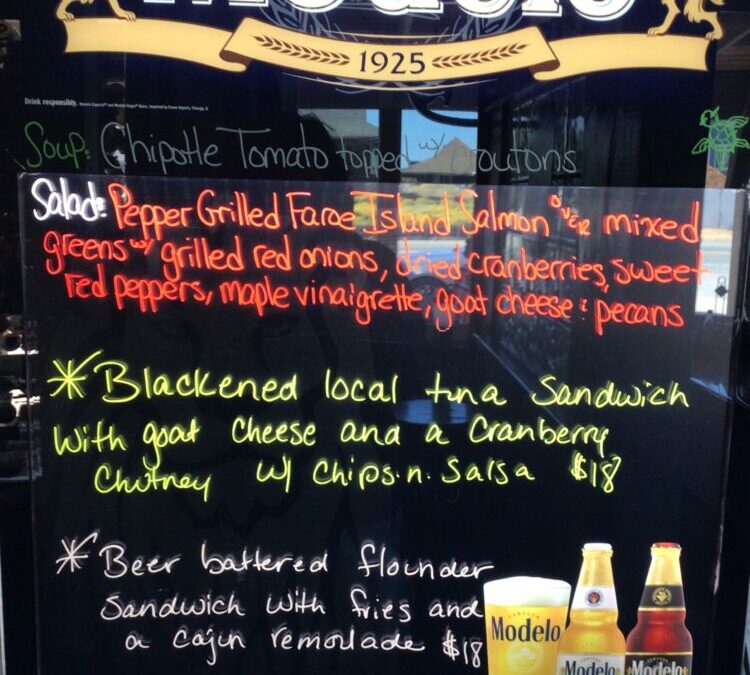 Modelo
1925
Drink responsibly.
Soup: Chipotle Tomato topped w/ croutons
Salad: Pepper Grilled Faroe Island Salmon over mixed
greens w/ grilled red onions, dried cranberries, sweet
red peppers, maple vinaigrette, goat cheese & pecans
* Blackened local tuna Sandwich
With goat cheese and a Cranberry
Chutney w/ chips.n.Salsa $18
* Beer battered flounder
Sandwich with fries and
a cajun remoulade $18
Modelo
Modelo Modelo